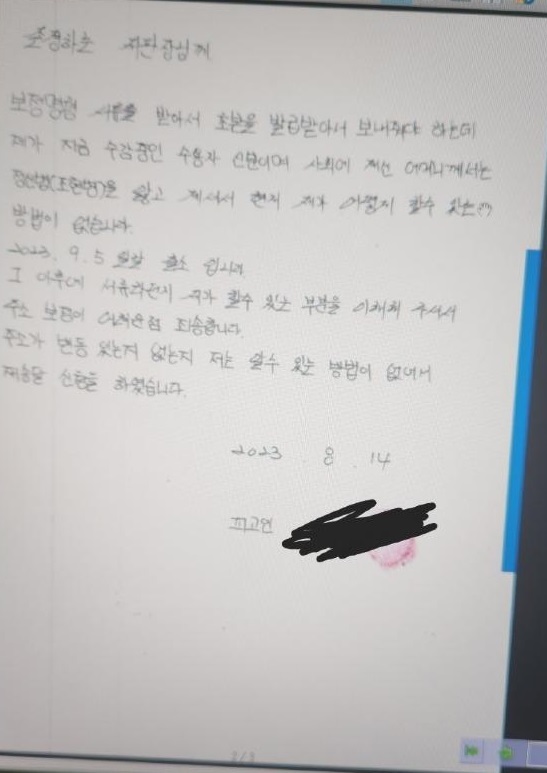 존경하는 재판장님께
보정명령 서류를 받아서 초본을 발급받아서 보내줘야 하는데
제가 지금 수감중인 수용자 신분이며 사회에 계신 어머니께서는
정신병(조현병)을 앓고 계셔서 현재 제가 어떻게 할수 있는
방법이 없습니다.
2023. 9. 5 출소 입니다.
I 이후에 서류라던지 제가 할수 있는 부분을 이해해 주셔서
주소 보정이 어려운점 죄송합니다.
주소가 변동 있는지 없는지 저는 알수 있는 방법이 없어서
재송달 신청을 하였습니다.
2023 . 8 . 14
피고인